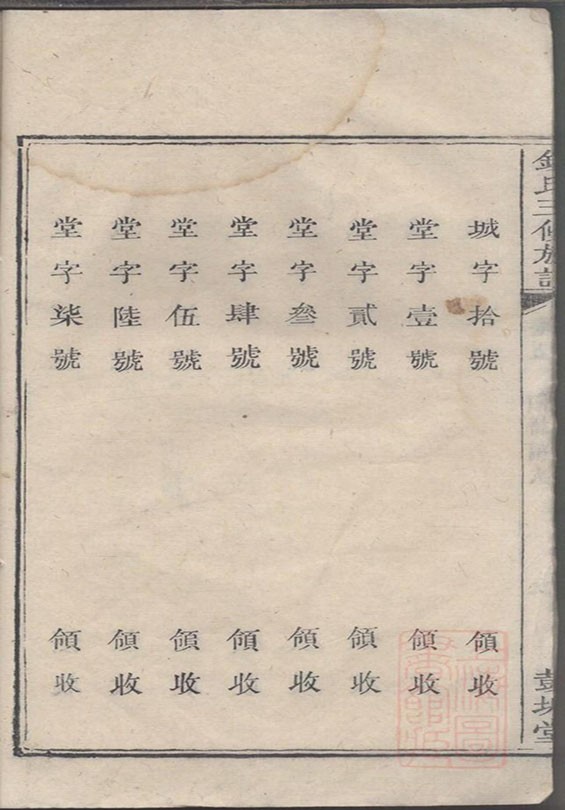 城字拾號 領收
堂字壹號 領收
堂字貳號 領收
堂字叄號 領收
堂字肆號 領收
堂字伍號 領收
堂字陸號 領收
堂字柒號 領收
彭城堂